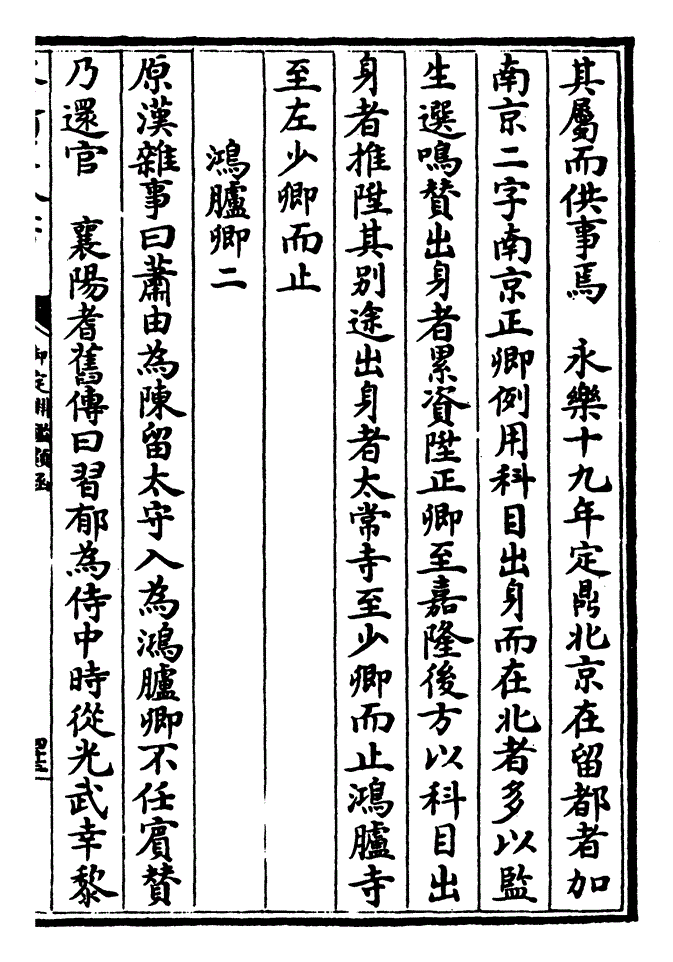 其屬而供事焉　永樂十九年定鼎北京在留都者加
南京二字南京正卿例用科目出身而在北者多以監
生選鳴贊出身者累資陞正卿至嘉隆後方以科目出
身者推陞其別途出身者太常寺至少卿而止鴻臚寺
至左少卿而止
鴻臚卿二
原漢雜事曰蕭由為陳留太守入為鴻臚卿不任賓贊
乃還官　襄陽耆舊傳曰習郁為侍中時從光武幸黎
御定淵鑑類函